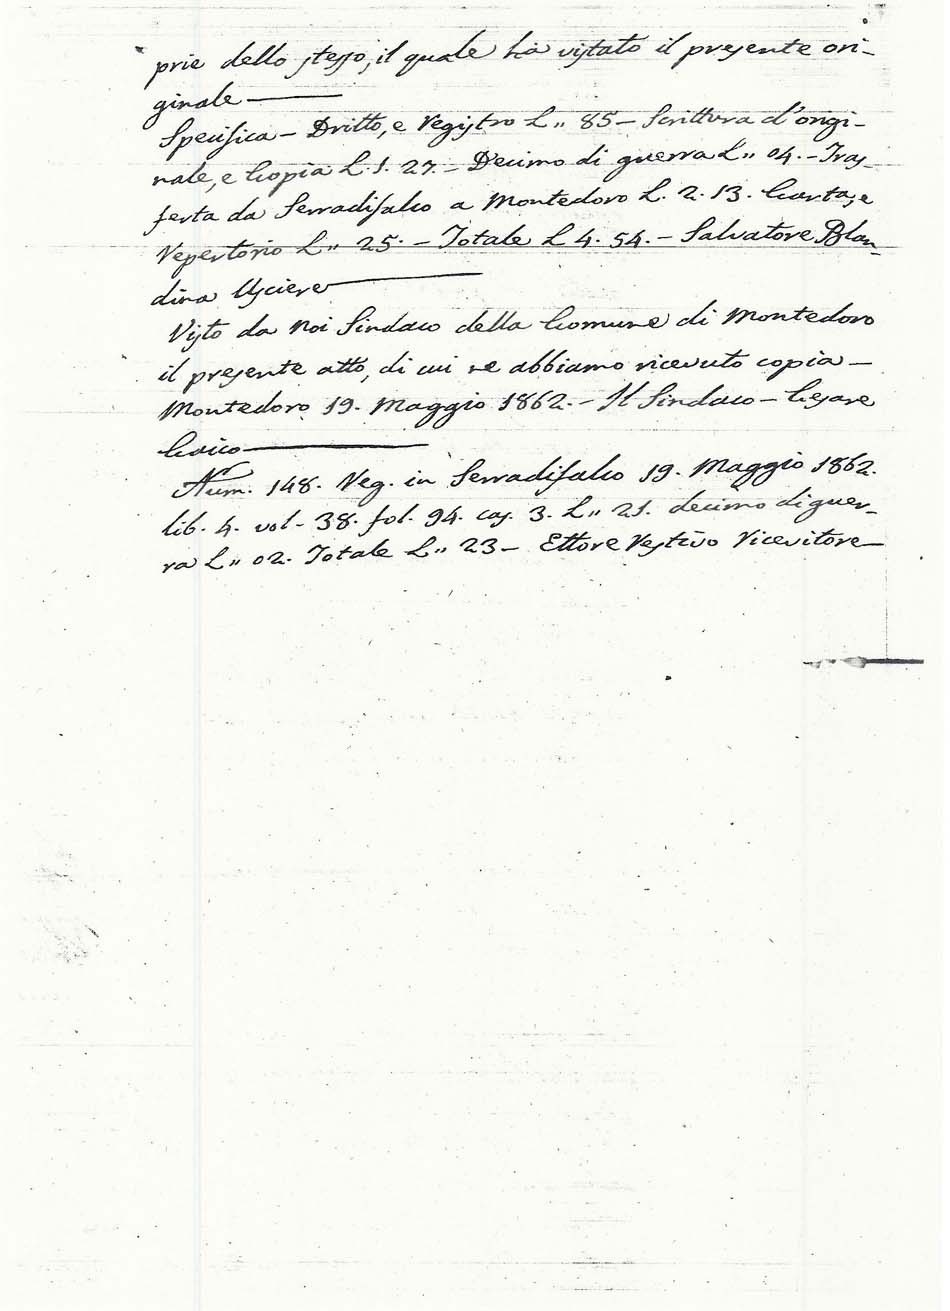 prie dello stesso, il quale ha vistato il presente ori-
ginale —
Specifica - Dritto, e Registro L. „ 85 - Scrittura d'origi-
nale, e Copia L. 1. 27. - Decimo di guerra L „ 04. - Tras-
ferta da Serradifalco a Montedoro L. 2. 13. Carta, e
Repertorio L „ 25. - Totale L 4. 54. - Salvatore Blan-
dina Usciere —
Visto da Noi Sindaco della Comune di Montedoro
il presente atto, di cui ne abbiamo ricevuto copia -
Montedoro 19. Maggio 1862. - Il Sindaco - Cesare
Caico —
Num. 148. Reg. in Serradifalco 19. Maggio 1862.
lib. 4. vol. 38. fol. 94. cas. 3. L „ 21. decimo di guer-
ra L „ 02. Totale L „ 23 - Ettore Restivo Ricevitore —